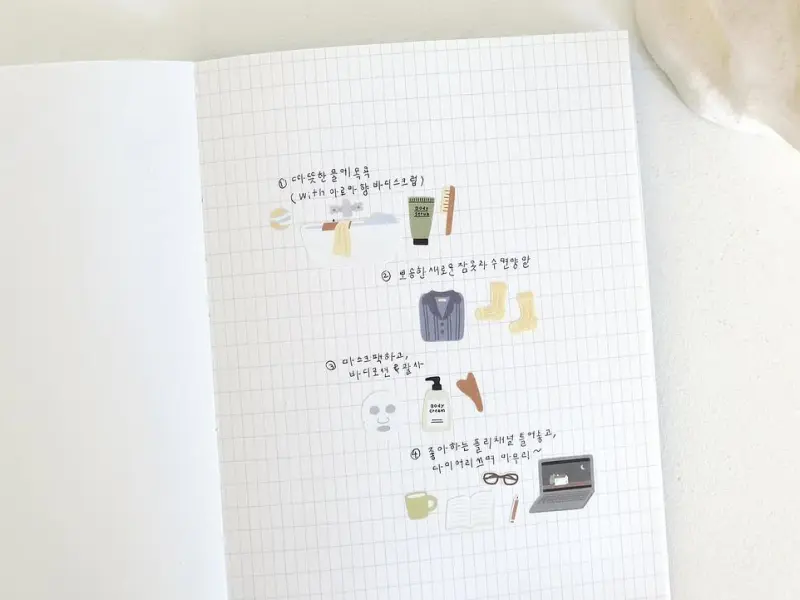 ① 따뜻한 물에 목욕
(with 아로마 향 바디스크럽)
Body
Scrub
② 뽀송한 새로운 잠옷과 수면양말
③ 마스크팩하고,
바디로션 & 괄사
Body
Cream
④ 좋아하는 플리채널 틀어놓고,
다이어리 쓰며 마무리 ~